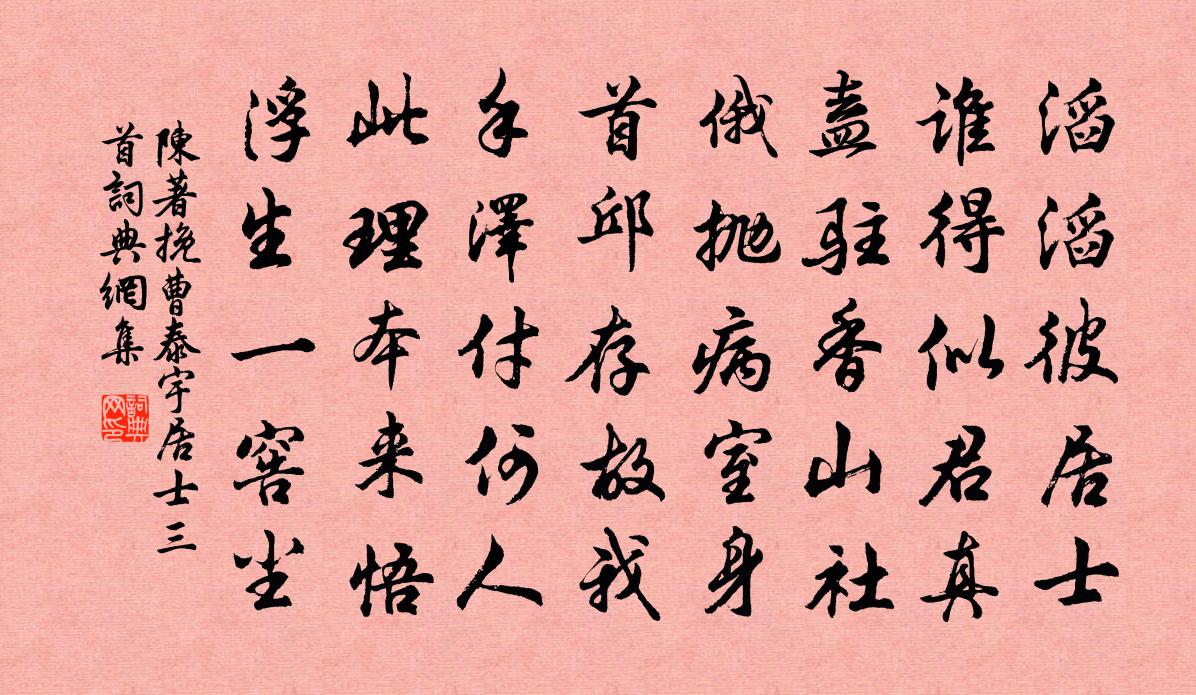 滔滔彼居士
誰得似君真
盍駐香山社
俄抛病室身
首邱存故我
手澤付何人
此理本来悟
浮生一窖尘
陳著挽曹泰宇居士三
首詞典網集
詞典
网印